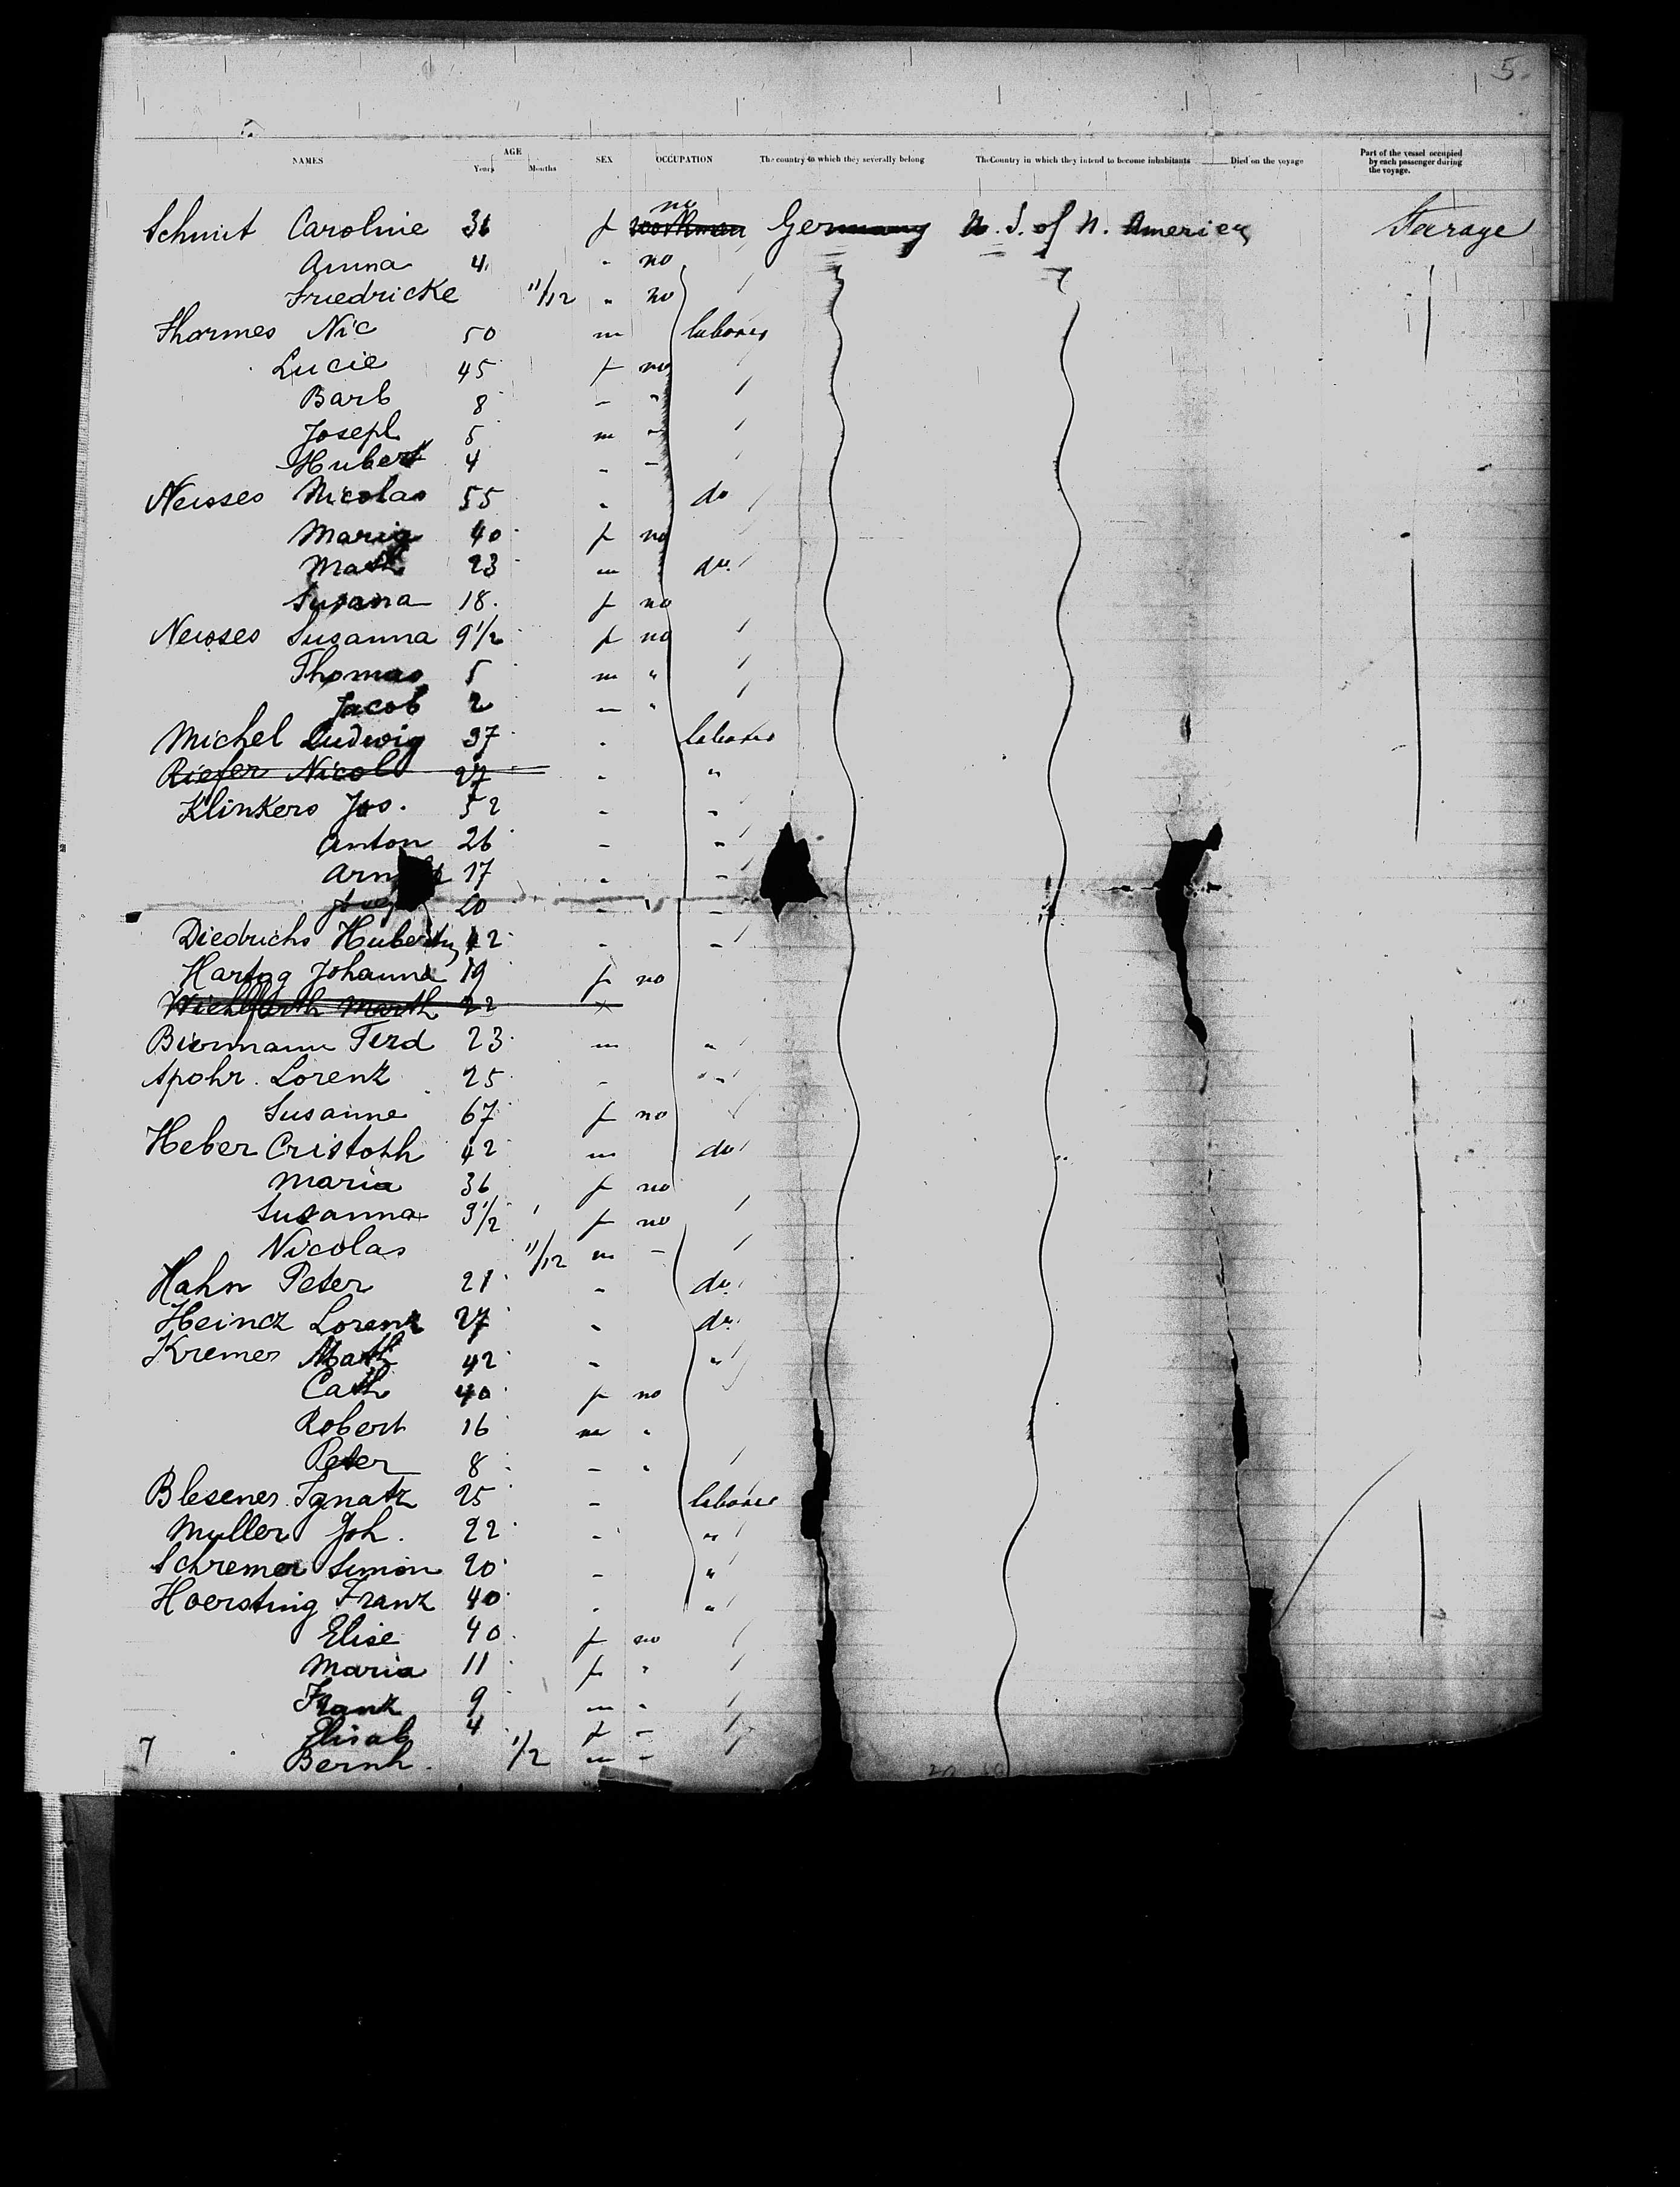 5.
NAMES AGE Years Months SEX OCCUPATION The country to which they severally belong The Country in which they intend to become inhabitants Died on the voyage Part of the vessel occupied by each passenger during the voyage.
no
Schmit Caroline 36 f workman Germany U. S. of N. America Steerage
Anna 4 " no
Friedricke 11/12 " no
Thormes Nic 50 m laborer
Lucie 45 f no
Barb 8 – "
Joseph 5 m –
Hubert 4 – –
Neisses Nicolas 55 " do
Maria 40 f no
Math 23 m do
Susana 18 f no
Neisses Susanna 9 1/2 f no
Thomas 5 m "
Jacob 2 – "
Michel Ludwig 37 " laborer
Riefer Nicol 27 - "
Klinkers Jos. 52 – –
Anton 26 – –
17 – –
20 – –
Diedrichs 42 – –
Hartog Johanna 19 f no
Marth 22
Biermann Ferd 23 m "
Spohr Lorenz 25 – "
Susanne 67 f no
Heber Cristoph 42 m do
Maria 36 f no
Susanna 9 1/2 f no
Nicolas 11/12 m –
Hahn Peter 21 – do
Heincz Lorenz 27 – do
Kremer Math 42 – "
Cath 40 f no
Robert 16 m "
Peter 8 – "
Blesener Ignatz 25 – laborer
Muller Joh. 22 – "
Schremer Simon 20 – "
Hoersting Franz 40 – "
Elise 40 f no
Maria 11 f "
Frank 9 m "
Elisab 4 f –
7 Bernh. 1/2 m –